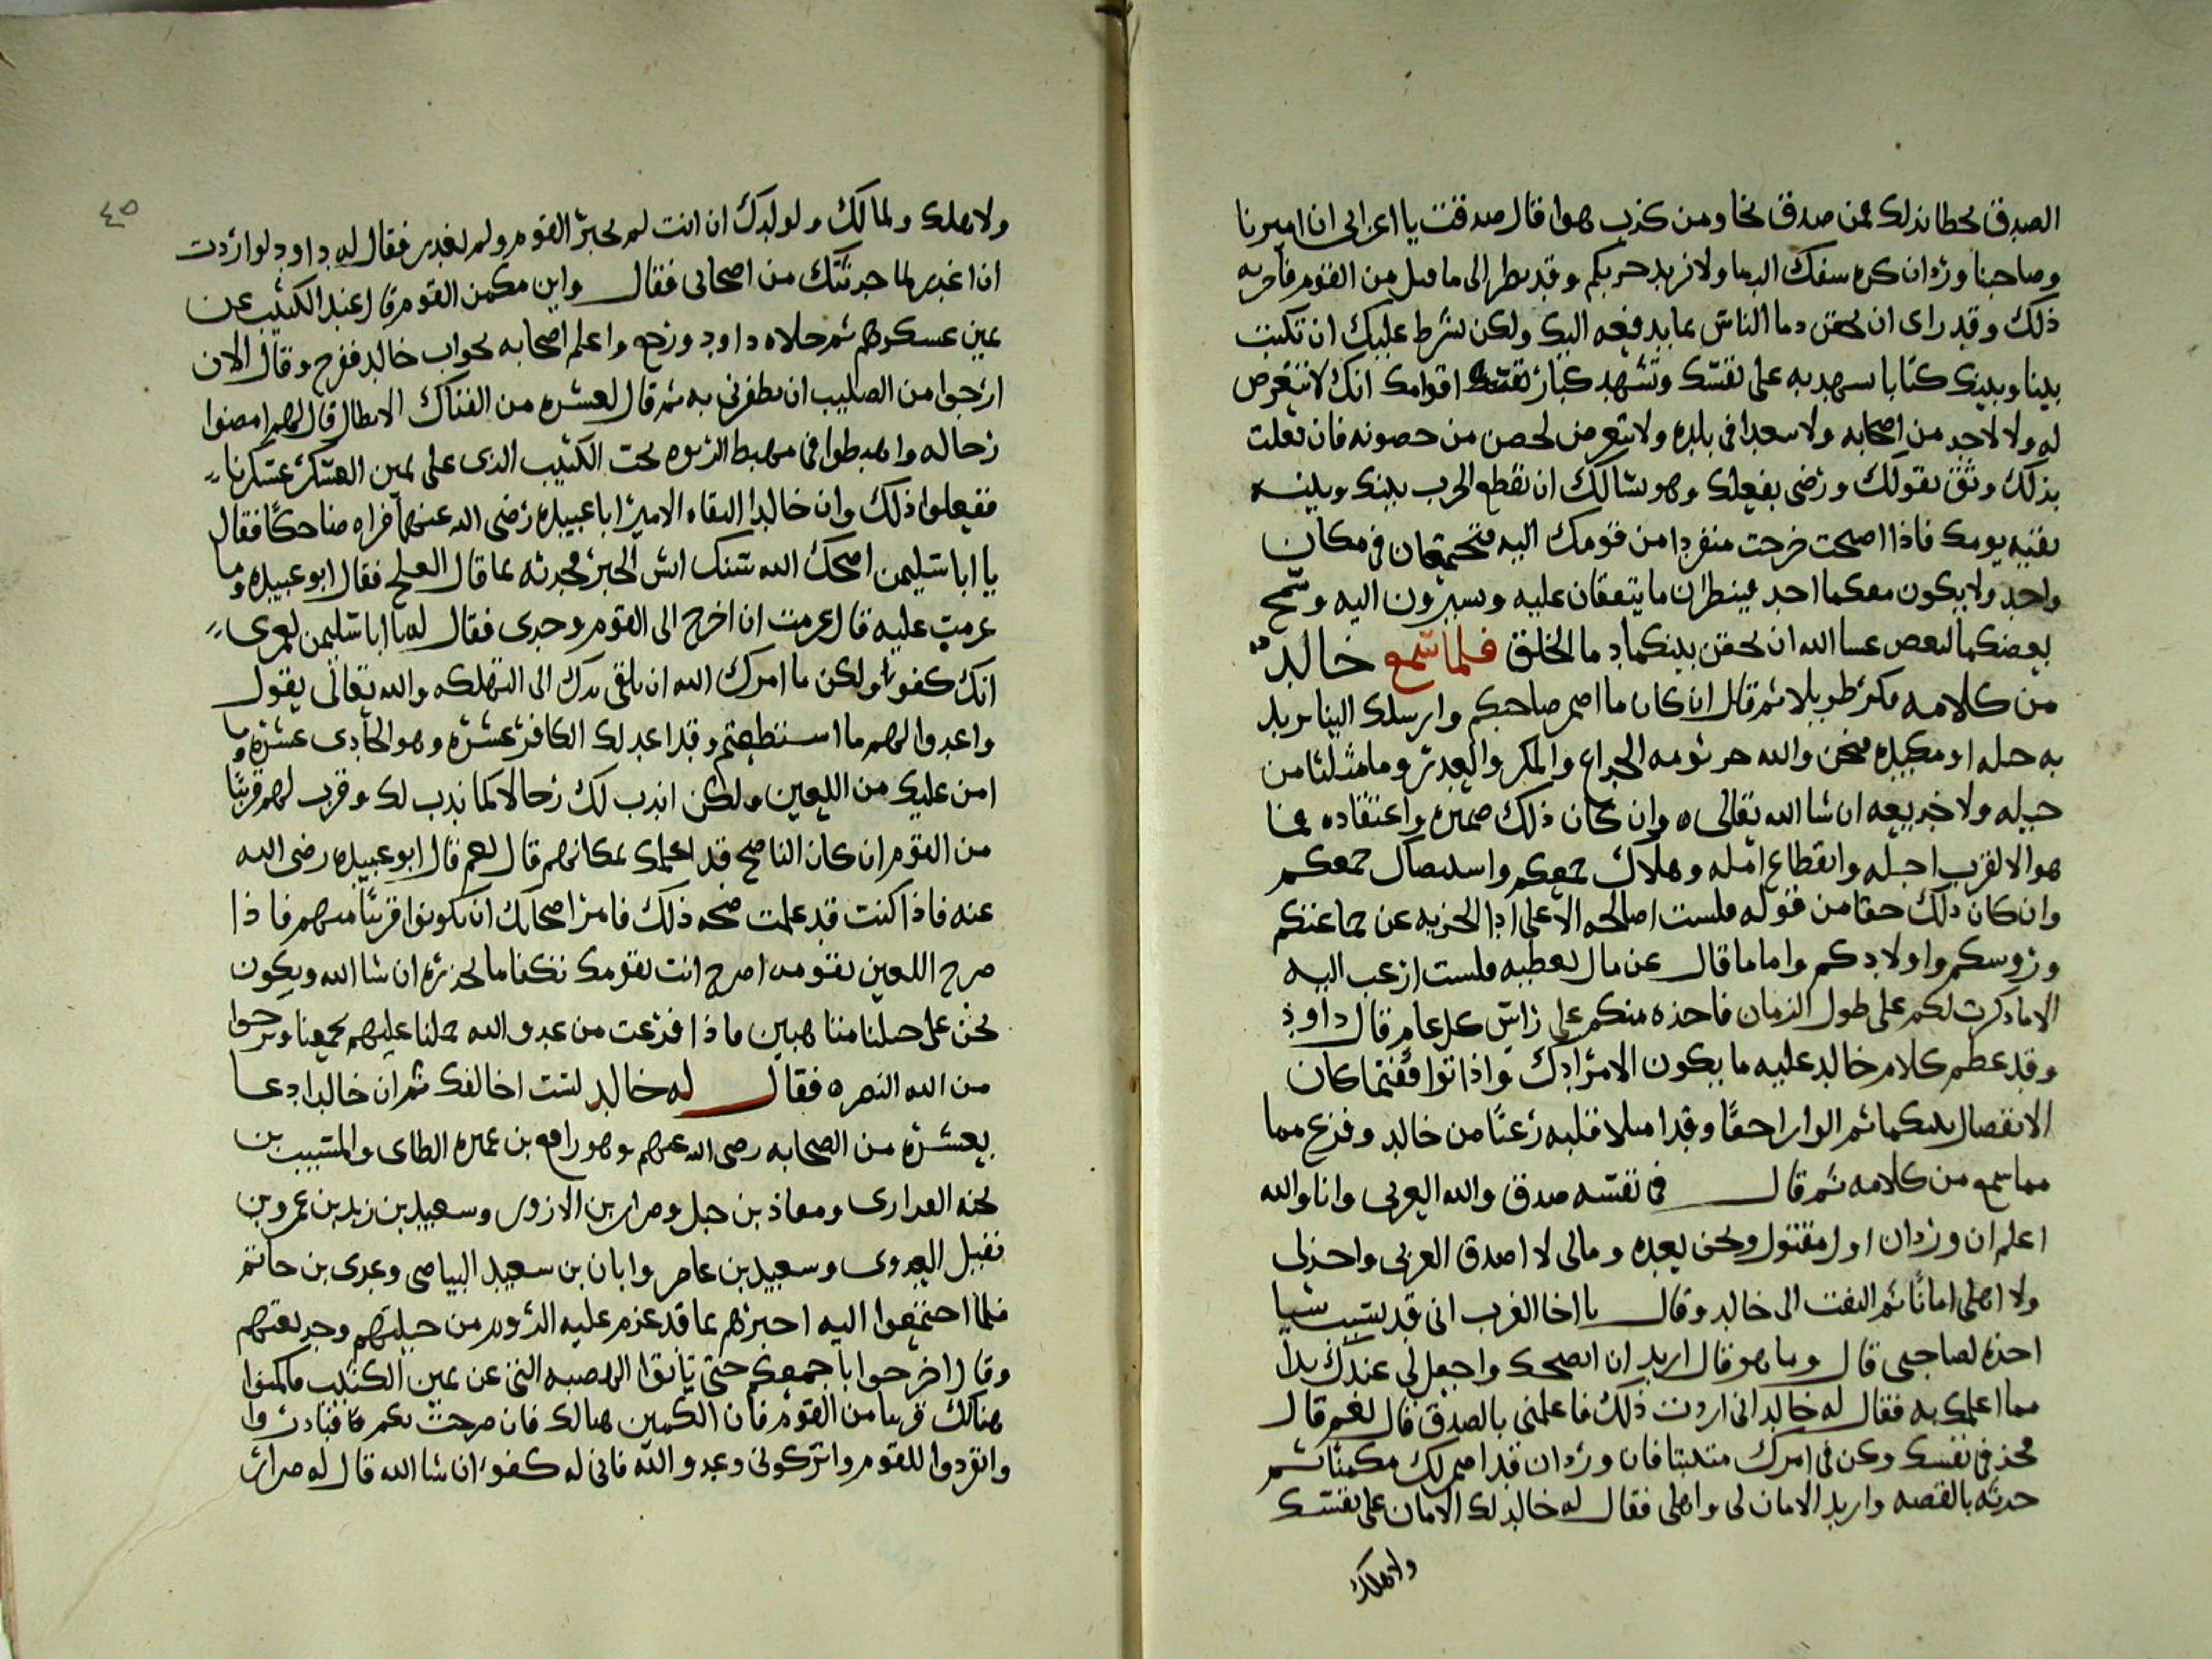 الصدق بحظا بذلك فمن صدق نجا ومن كذب هوا قال صدقت يا اعرابى ان اميرنا
وصاحبنا وردان كره سفك الدما ولا نريد حربكم وقد نظر الى ما قبل من القوم فاحزنه
ذلك وقد راى ان يحقن دما الناس بما يدفعه اليك ولكن نشرط عليك ان تكتب
بيننا وبينك كتابا نشهد به على نفسك وتشهد كبار اقوامك انك لا تتعرض
له ولا لاحد من اصحابه ولا سعدا فى بلده ولا يتعرض لحصن من حصونه فان فعلت
بذلك وثق بقولك ورضى بفعلك وهو يسالك ان تقطع الحرب بينك وبينه
بقية يومك فاذا اصبحت خرجت منفردا من قومك اليه فتجتمعان فى مكان
واحد ولا يكون معكما احد فينظران ما يتفقان عليه ويسيرون اليه وسمح
بعضكما لبعض عسا الله ان يحقن بينكما دما الخلق فلما سمع خالد
من كلامه فكر طويلا ثم قال ان كان ما اضمر صاحبكم وارسلك الينا يريد
به حيله او مكيده فنحن والله جرثومه الخداع والمكر والغدر وما مثلنا من
حيله ولا خديعه ان شا الله تعالى وان كان ذلك ضميره واعتقاده فما
هو الا لقرب اجله وانقطاع امله وهلاك جمعكم واستيصال جمعكم
وان كان ذلك حقا من قوله فلست اصالحه الا على ادا الجزيه عن جماعتكم
وروسكم واولادكم واما ما قال عن مال يعطيه فلست ارغب اليه
الا ما ذكرت لكم على طول الزمان فاخذه منكم على راس كل عام قال داود
وقد عظم كلام خالد عليه ما يكون الامر ادك واذا توافقتما كان
الانفصال بينكما ثم الوا راجعا وقد امتلا قلبه رعبا من خالد وفزع مما
مما سمع من كلامه ثم قال فى نفسه صدق والله العربى وانا والله
اعلم ان وردان اول مقتول ونحن بعده ومالى لا اصدق العربى واخذ لى
ولا اهلى امانا ثم التفت الى خالد وقال يا اخا العرب انى قد نسيت شيا
اخذه لصاحبى قال وما هو قال اريد ان انصحك واجعل لى عندك يدا
مما اعلمك به فقال له خالد انى اردت ذلك فاعلمنى بالصدق قال نعم قال
فخذ فى نفسك وكن فى امرك متثبتا فان وردان قد اضمر لك مكمنا ثم
حدثه بالقصه واريد الامان لى واهلى فقال له خالد لك الامان على نفسك
ولاهلك
٤٥
ولاهلك ولمالك ولولدك ان انت لم تخبر القوم ولم تغدر فقال له داود لو اردت
ان اغدر لما حدثتك من اصحابى فقال واين مكمن القوم قال عند الكثيب عن
يمين عسكرهم ثم خلاه داود ورجع واعلم اصحابه بجواب خالد ففرح وقال الان
ارجوا من الصليب ان يظفرنى به ثم قال لعشره من الفتاك الابطال قال لهم امضوا
رجاله واهبطوا فى مهبط الربوه تحت الكثيب الذى على يمين العسكر عسكرنا
ففعلوا ذلك وان خالدا التقاه الامير ابا عبيده رضى الله عنهما فراه ضاحكا فقال
يا ابا سليمن اضحك الله سنك ايش الخبر فحدثه بما قال العلج فقال ابو عبيده وما
عزمت عليه قال عزمت ان اخرج الى القوم وحدى فقال له يا ابا سليمن لعمرى
انك كفو ولكن ما امرك الله ان تلقى يدك الى التهلكه والله تعالى يقول
واعدوا لهم ما استطعتم وقد اعد لك الكافر عشره وهو الحادى عشر وما
امن عليك من اللعين ولكن اندب لك رجالا كما ندب لك وقرب لهم قريبا
من القوم ان كان الناصح قد اعلمك بمكانهم قال نعم قال ابو عبيده رضى الله
عنه فاذا كنت قد علمت صحه ذلك فامر اصحابك ان يكونوا قريبا منهم فاذا
صرح اللعين بقومه اصرح انت بقومك نكفا ما نحذره ان شا الله ويكون
نحن على خيلنا متاهبين فاذا فرغت من عدو الله حملنا عليهم بجمعنا ونرجوا
من الله النصره فقال له خالد لست اخالفك ثم ان خالدا دعا
بعشره من الصحابه رضى الله عنهم وهو رافع بن عميره الطاى والمسيب بن
نجبه الفزارى ومعاذ بن جبل وضرار بن الازور وسعيد بن زيد بن عمرو بن
نفيل العدوى وسعيد بن عامر وابان بن سعيد البياضى وعدى بن حاتم
فلما اجتمعوا اليه اخبرهم بما قد عزم عليه الروم من حيلتهم وخديعتهم
وقال اخرجوا باجمعكم حتى تاتوا الهضبه التى عن يمين الكثيب فاكمنوا
هنالك قريبا من القوم فان الكمين هنالك فان صرحت بكم فبادروا
وانفردوا للقوم واتركونى وعدو الله فانى له كفو ان شا الله قال له ضرار